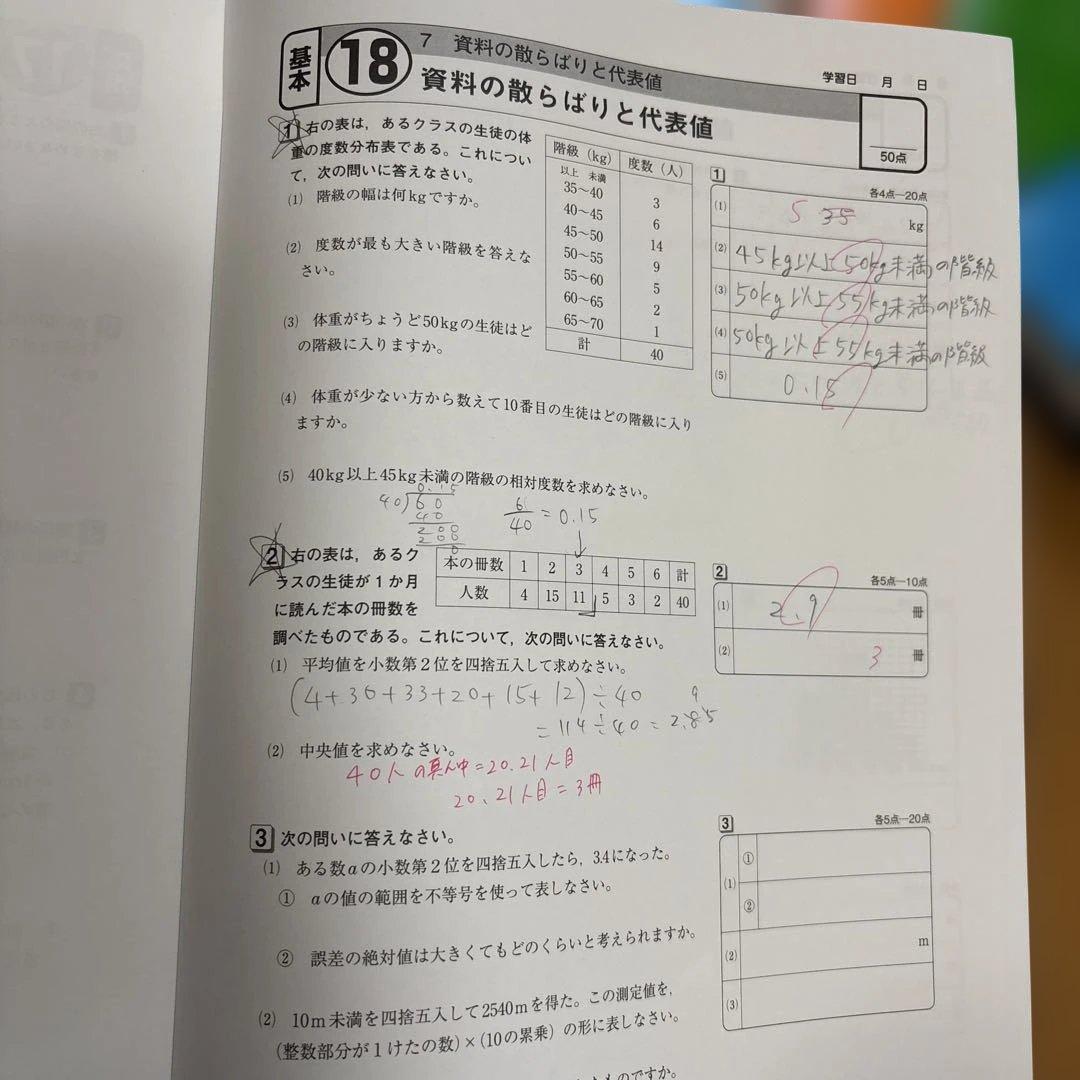 基本
18
7 資料の散らばりと代表値
資料の散らばりと代表値
学習日 月 日
50点
1 右の表は，あるクラスの生徒の体
重の度数分布表である。これについ
て，次の問いに答えなさい。
(1) 階級の幅は何kgですか。
(2) 度数が最も大きい階級を答えな
さい。
(3) 体重がちょうど50kgの生徒はど
の階級に入りますか。
(4) 体重が少ない方から数えて10番目の生徒はどの階級に入り
ますか。
(5) 40kg以上45kg未満の階級の相対度数を求めなさい。
階級（kg） 度数（人）
以上 未満
35～40 3
40～45 6
45～50 14
50～55 9
55～60 5
60～65 2
65～70 1
計 40
1
各4点—20点
(1) 5 35 kg
(2) 45kg以上50kg未満の階級
(3) 50kg以上55kg未満の階級
(4) 50kg以上55kg未満の階級
(5) 0.15
0.15
40)60
40
200
200
0
6/40 = 0.15
2 右の表は，あるク
ラスの生徒が1か月
に読んだ本の冊数を
調べたものである。これについて，次の問いに答えなさい。
本の冊数 1 2 3 4 5 6 計
人数 4 15 11 5 3 2 40
(1) 平均値を小数第2位を四捨五入して求めなさい。
(4+30+33+20+15+12)÷40
9
=114÷40=2.85
(2) 中央値を求めなさい。
40人の真ん中=20.21人目
20、21人目=3冊
2
各5点—10点
(1) 2.9 冊
(2) 3 冊
3 次の問いに答えなさい。
(1) ある数aの小数第2位を四捨五入したら，3.4になった。
① aの値の範囲を不等号を使って表しなさい。
② 誤差の絶対値は大きくてもどのくらいと考えられますか。
(2) 10m未満を四捨五入して2540mを得た。この測定値を，
(整数部分が1けたの数)×(10の累乗) の形に表しなさい。
ものですか。
3
各5点—20点
(1) ①
②
(2) m
(3)